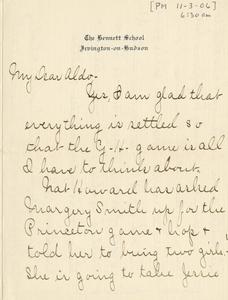 [PM 11-3-06]
6:30 am
The Bennett School
Irvington-on-Hudson
My Dear Aldo-
Yes, I am glad that
everything is settled so
that the Y-H- game is all
I have to think about.
Nat Howard has asked
Margery Smith up for the
Princeton game & hop &
told her to bring two girls.
She is going to take Jessie